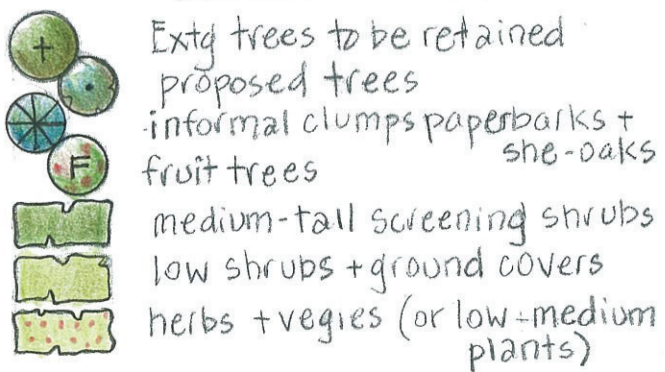 Extg trees to be retained
+
proposed trees
informal clumps paperbarks +
she-oaks
F
fruit trees
medium-tall screening shrubs
low shrubs + ground covers
herbs + vegies (or low-medium
plants)